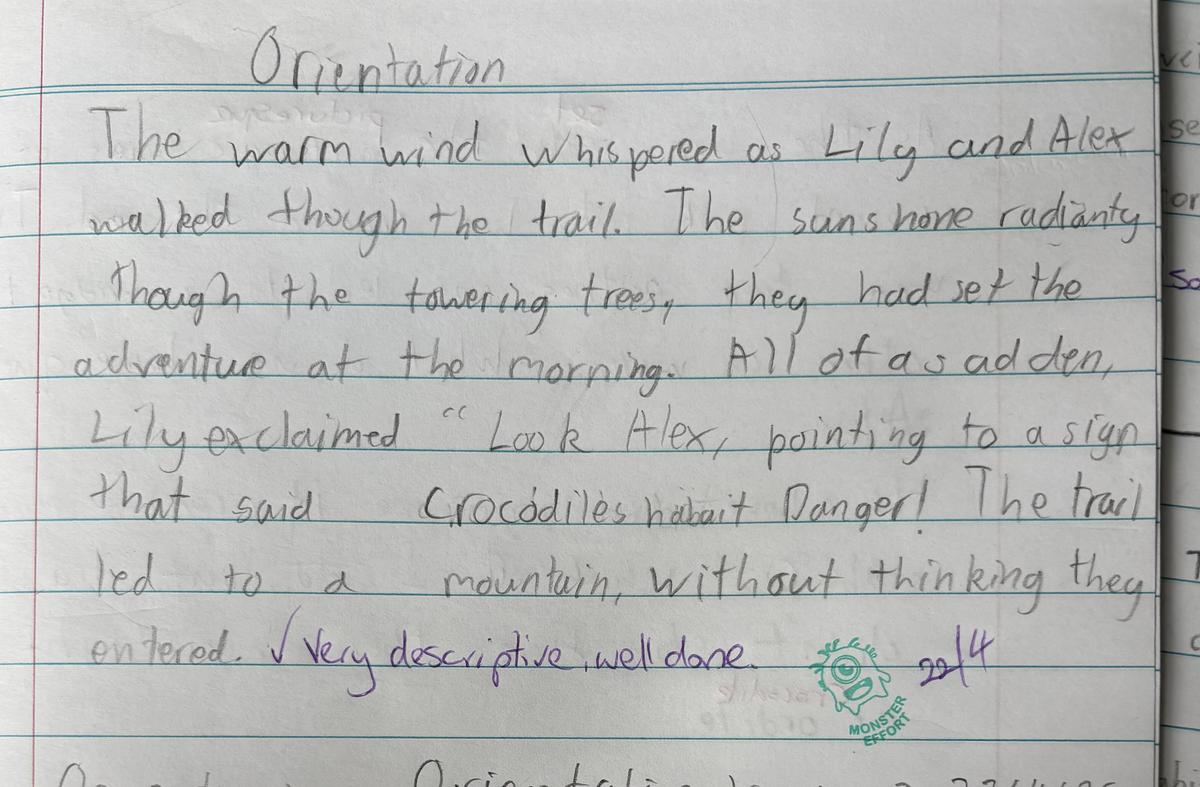 Orientation
The warm wind whispered as Lily and Alex
walked though the trail. The sun shone radianty
though the towering trees, they had set the
adventure at the morning. All of a sadden,
Lily exclaimed “Look Alex, pointing to a sign
that said Crocodiles habait Danger! The trail
led to a mountain, without thinking they
entered. √ Very descriptive, well done. 22/4
MONSTER
EFFORT